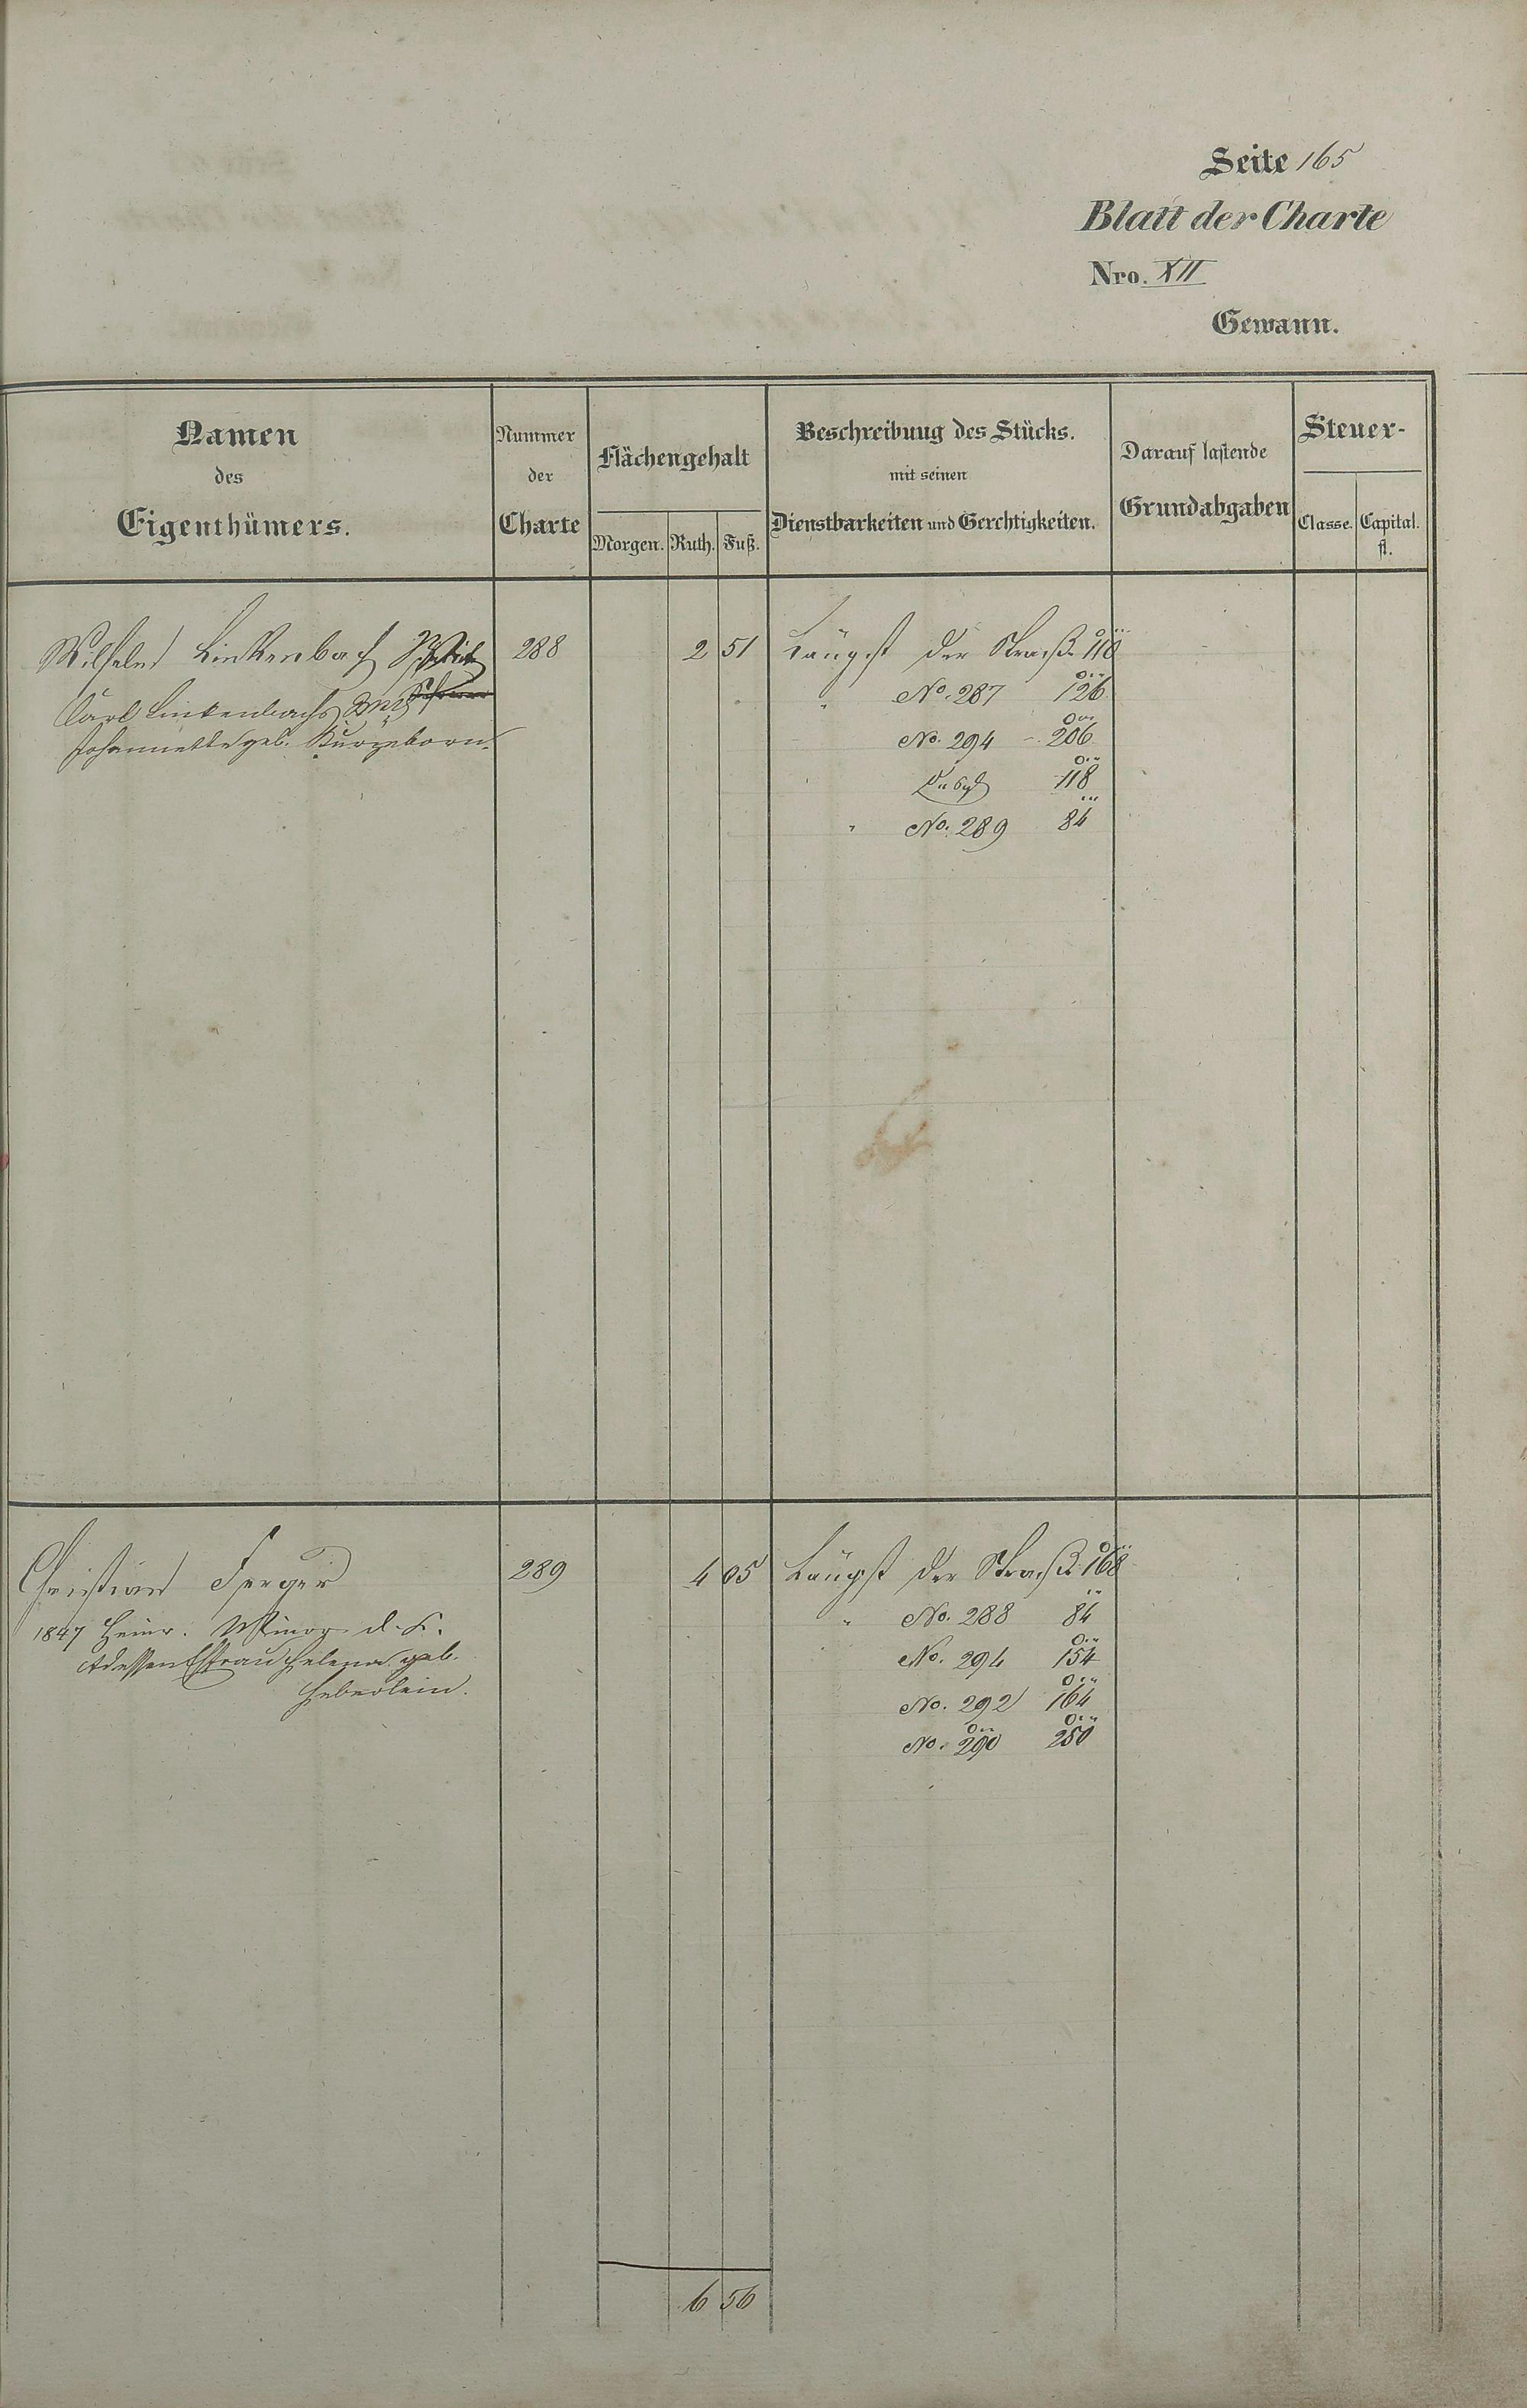 Seite 165
Blatt der Charte
Nro. XII
Gewann.
Namen des Eigenthümers.
Nummer der Charte
Flächengehalt
Morgen. Ruth. Fuß.
Beschreibung des Stücks.
mit seinen
Dienstbarkeiten und Gerchtigkeiten.
Darauf lastende
Grundabgaben
Steuer-
Classe. Capital.
fl.
Wilhelm Linkenbach 288 2 51 Längst der Straße 110
Carl Linkenbachs " No. 287 126
Johannette geb. Kurzeborn. No. 294 - 206
118
" No. 289 84
Christian Ferger 289 4 05 Längst der Straße 168
1847 Heinr. Minor d. K. " No. 288 84
dessen Ehefrau Helena geb. No. 294 154
Heberlein. No. 292 164
No. 290 250
6 56